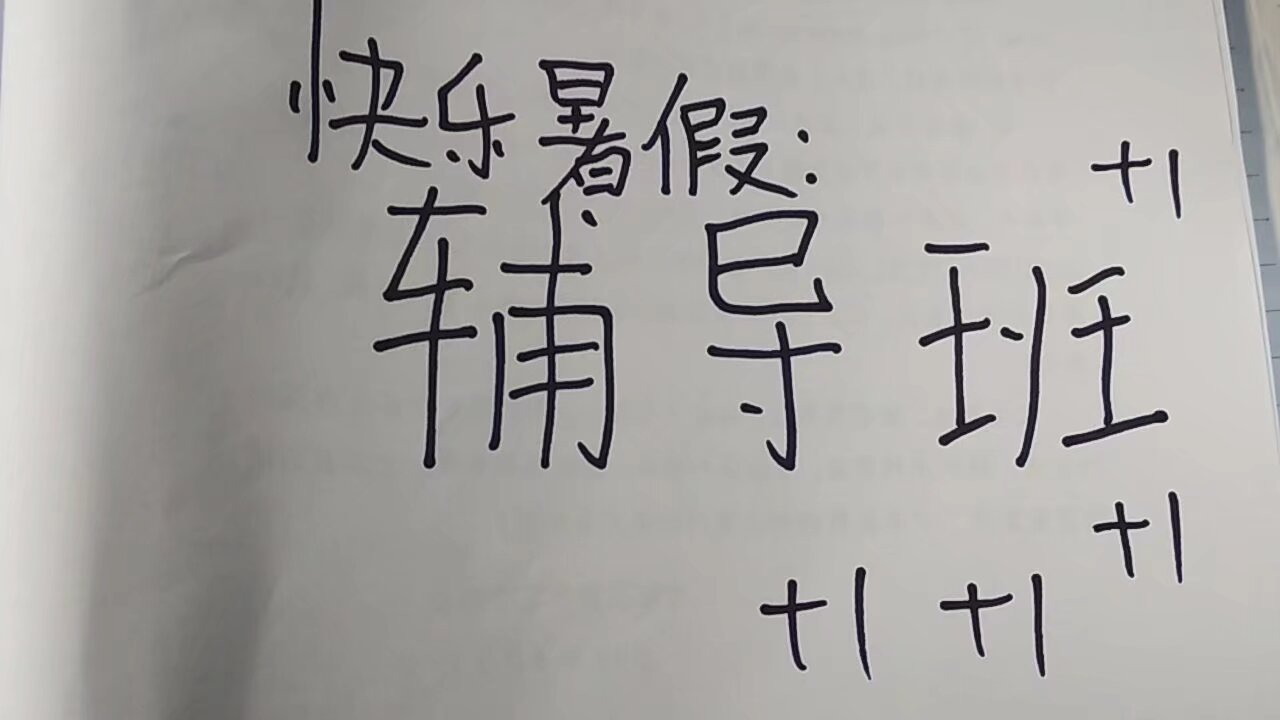 快乐暑假:
+1
辅导班
+1
+1 +1